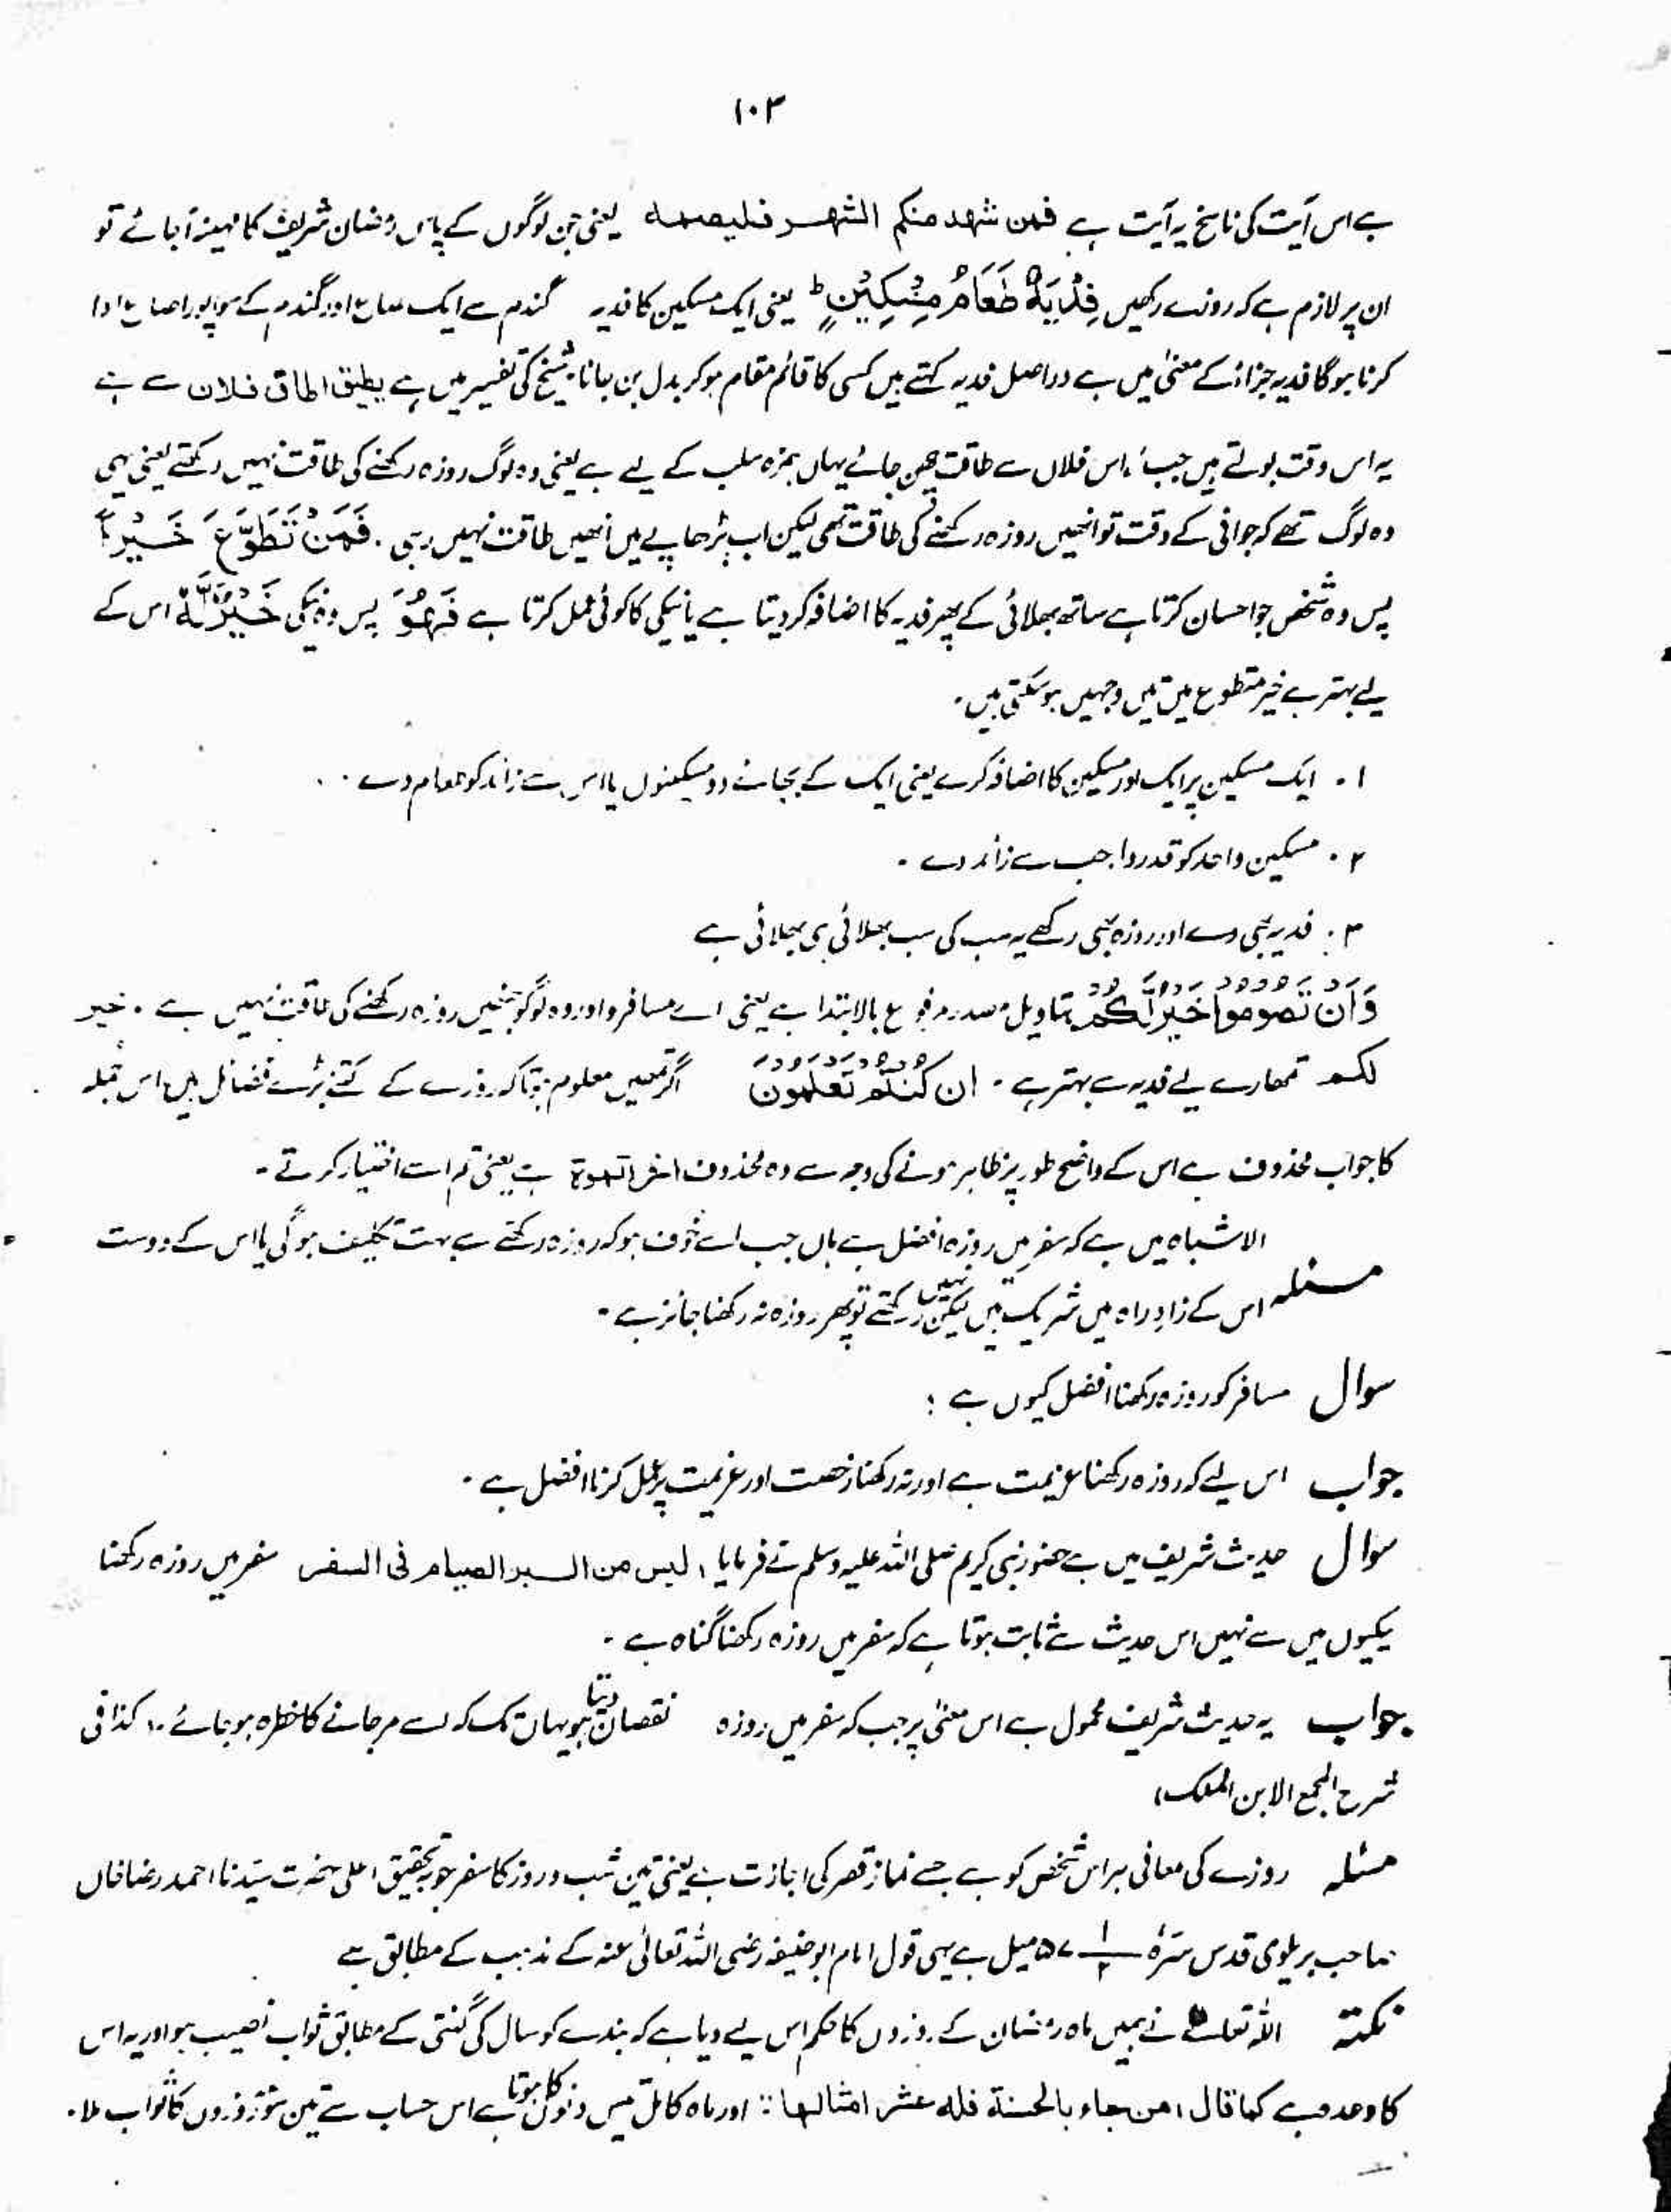 ۱۰۳
ہے اس آیت کی ناسخ یہ آیت ہے فمن شھد منکم الشھر فلیصمہ یعنی جن لوگوں کے پاس رمضان شریف کا مہینہ آجائے تو
ان پر لازم ہے کہ روزے رکھیں فِدْیَۃٌ طَعَامُ مِسْکِیْنٍ ؕ یعنی ایک مسکین کا فدیہ گندم سے ایک صاع اور گندم کے سوا پورا صاع ادا
کرنا ہوگا فدیہ جزاء کے معنیٰ میں ہے دراصل فدیہ کہتے ہیں کسی کا قائم مقام ہو کر بدل بن جانا۔ شیخ کی تفسیر میں ہے یطیق اطاق فلان سے ہے
یہ اس وقت بولتے ہیں جب اس فلاں سے طاقت چھن جائے یہاں ہمزہ سلب کے لیے ہے یعنی وہ لوگ روزہ رکھنے کی طاقت نہیں رکھتے یعنی یہی
وہ لوگ تھے کہ جوانی کے وقت تو انھیں روزہ رکھنے کی طاقت تھی لیکن اب بڑھاپے میں انھیں طاقت نہیں رہی۔ فَمَنْ تَطَوَّعَ خَیْرًا
پس وہ شخص جو احسان کرتا ہے ساتھ بھلائی کے پھر فدیہ کا اضافہ کر دیتا ہے یا نیکی کا کوئی عمل کرتا ہے فَھُوَ پس وہ نیکی خَیْرٌ لَّہٗ اس کے
لیے بہتر ہے خیر متطوع میں تین وجہیں ہو سکتی ہیں۔
۱۔ ایک مسکین پر ایک اور مسکین کا اضافہ کرے یعنی ایک کے بجائے دو مسکینوں یا اس سے زائد کو طعام دے۔
۲۔ مسکین واحد کو قدر واجب سے زائد دے۔
۳۔ فدیہ بھی دے اور روزہ بھی رکھے یہ سب کی سب بھلائی ہی بھلائی ہے
وَاَنْ تَصُوْمُوْا خَیْرٌ لَّکُمْ بتاویل مصدر مرفوع بالابتدا ہے یعنی اے مسافرو اور وہ لوگو جنھیں روزہ رکھنے کی طاقت نہیں ہے۔ خیر
لکم تمھارے لیے فدیہ سے بہتر ہے۔ ان کُنْتُمْ تَعْلَمُوْنَ اگر تمھیں معلوم ہوتا کہ روزے کے کتنے بڑے فضائل ہیں اس جملہ
کا جواب محذوف ہے اس کے واضح طور پر ظاہر ہونے کی وجہ سے وہ محذوف ہے یعنی تم اسے اختیار کرتے۔
الاشباہ میں ہے کہ سفر میں روزہ افضل ہے ہاں جب اسے خوف ہو کہ روزہ رکھنے سے بہت تکلیف ہوگی یا اس کے دوست
مسئلہ اس کے زادِ راہ میں شریک ہیں لیکن نہیں رکھتے تو پھر روزہ نہ رکھنا جائز ہے۔
سوال مسافر کو روزہ رکھنا افضل کیوں ہے ؛
جواب اس لیے کہ روزہ رکھنا عزیمت ہے اور نہ رکھنا رخصت اور عزیمت پر عمل کرنا افضل ہے۔
سوال حدیث شریف میں ہے حضور نبی کریم صلی اللہ علیہ وسلم نے فرمایا، لیس من البر الصیام فی السفر سفر میں روزہ رکھنا
نیکیوں میں سے نہیں اس حدیث سے ثابت ہوتا ہے کہ سفر میں روزہ رکھنا گناہ ہے۔
جواب یہ حدیث شریف محمول ہے اس معنیٰ پر جب کہ سفر میں روزہ نقصان دیتا ہو یہاں تک کہ اسے مر جانے کا خطرہ ہو جائے۔ (کذا فی
شرح المجمع الابن الملک)
مسئلہ روزے کی معافی ہر اس شخص کو ہے جسے نماز قصر کی اجازت ہے یعنی تین شب و روز کا سفر جو بتحقیق اعلی حضرت سیدنا احمد رضا خاں
صاحب بریلوی قدس سرہٗ ۵۷ ۱/۲ میل ہے یہی قول امام ابو حنیفہ رضی اللہ تعالیٰ عنہ کے مذہب کے مطابق ہے
نکتہ اللہ تعالےٰ نے ہمیں ماہ رمضان کے روزوں کا حکم اس لیے دیا ہے کہ بندے کو سال کی گنتی کے مطابق ثواب نصیب ہو اور یہ اس
کا وعدہ ہے کما قال، من جاء بالحسنۃ فلہ عشر امثالہا :: اور ماہ کامل تیس دنوں کا ہوتا ہے اس حساب سے تین سو روزوں کا ثواب ملا۔